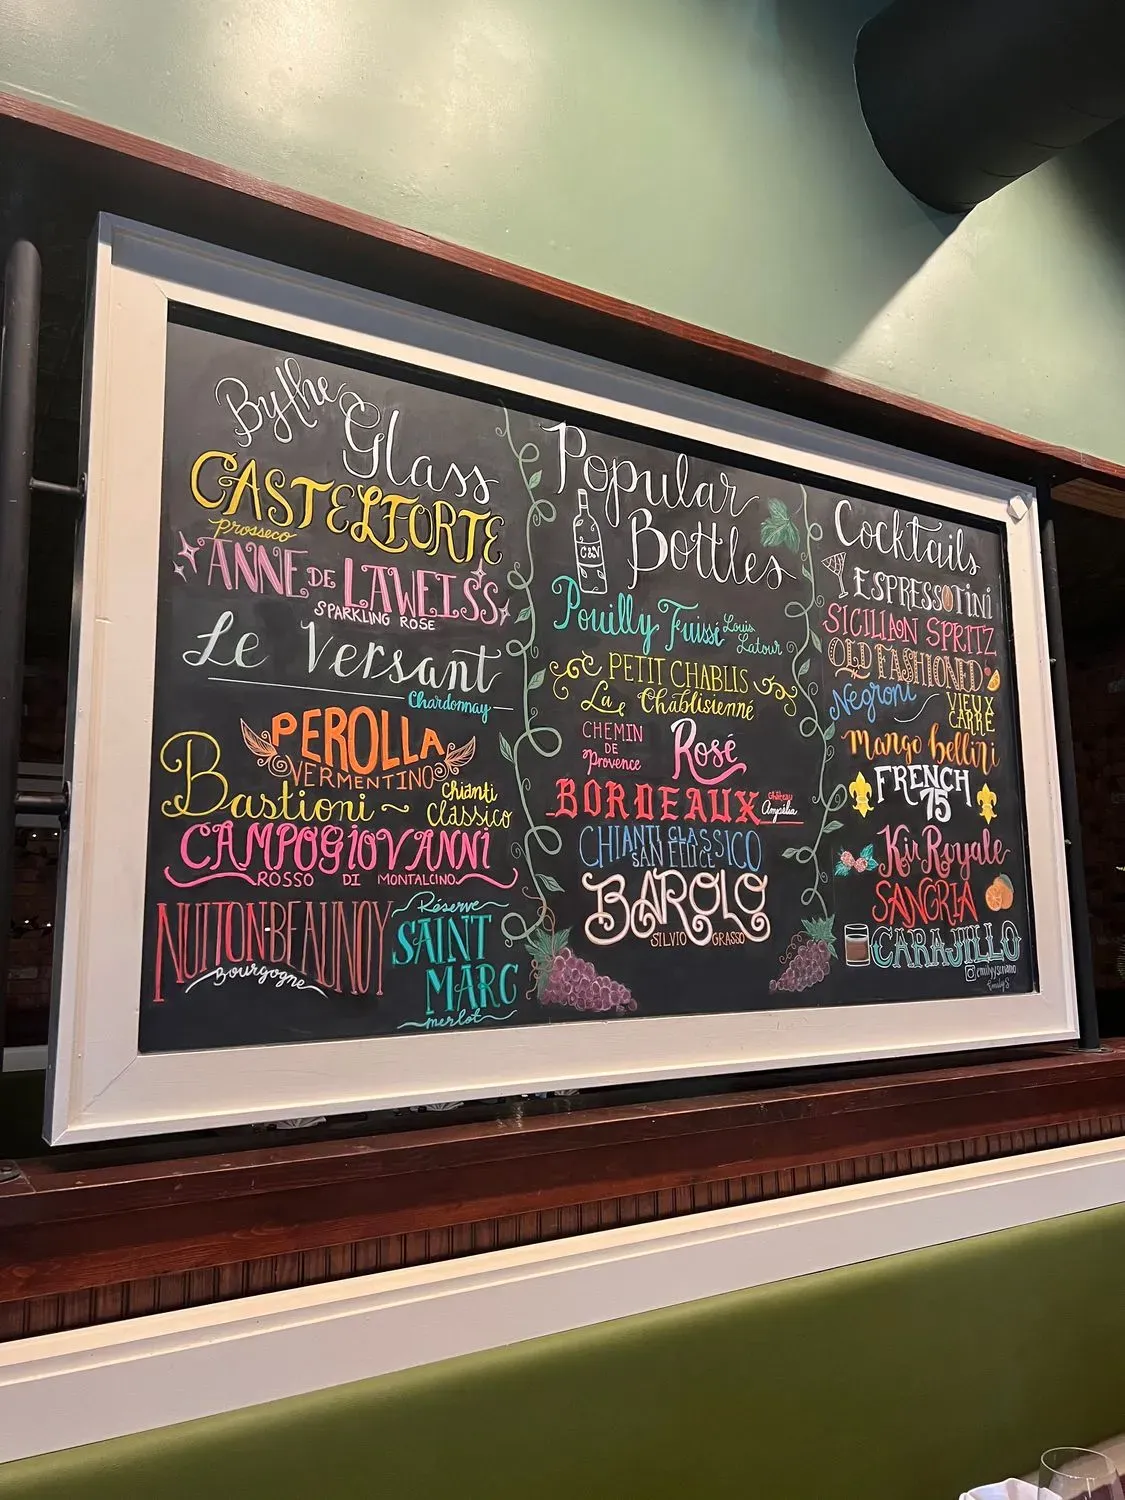 By the
Glass
CASTELFORTE
Prosseco
ANNE DE LAWEISS
SPARKLING ROSE
Le Versant
Chardonnay
PEROLLA
VERMENTINO
Bastioni ~ Chianti
Clássico
CAMPOGIOVANNI
ROSSO DI MONTALCINO
NUITON-BEAUNOY
Bourgogne
Réserve
SAINT
MARC
merlot
Popular
Bottles
C&V
Pouilly Fuissé Louis
Latour
PETIT CHABLIS
La Chablisienne
CHEMIN
DE
Provence
Rosé
BORDEAUX
Château
Ampélia
CHIANTI CLASSICO
SAN FELICE
BAROLO
SILVIO GRASSO
Cocktails
ESPRESSOTINI
SICILIAN SPRITZ
OLD FASHIONED
Negroni
VIEUX
CARRÉ
Mango bellini
FRENCH
75
Kir Royale
SANGRIA
CARAJILLO
Emily S